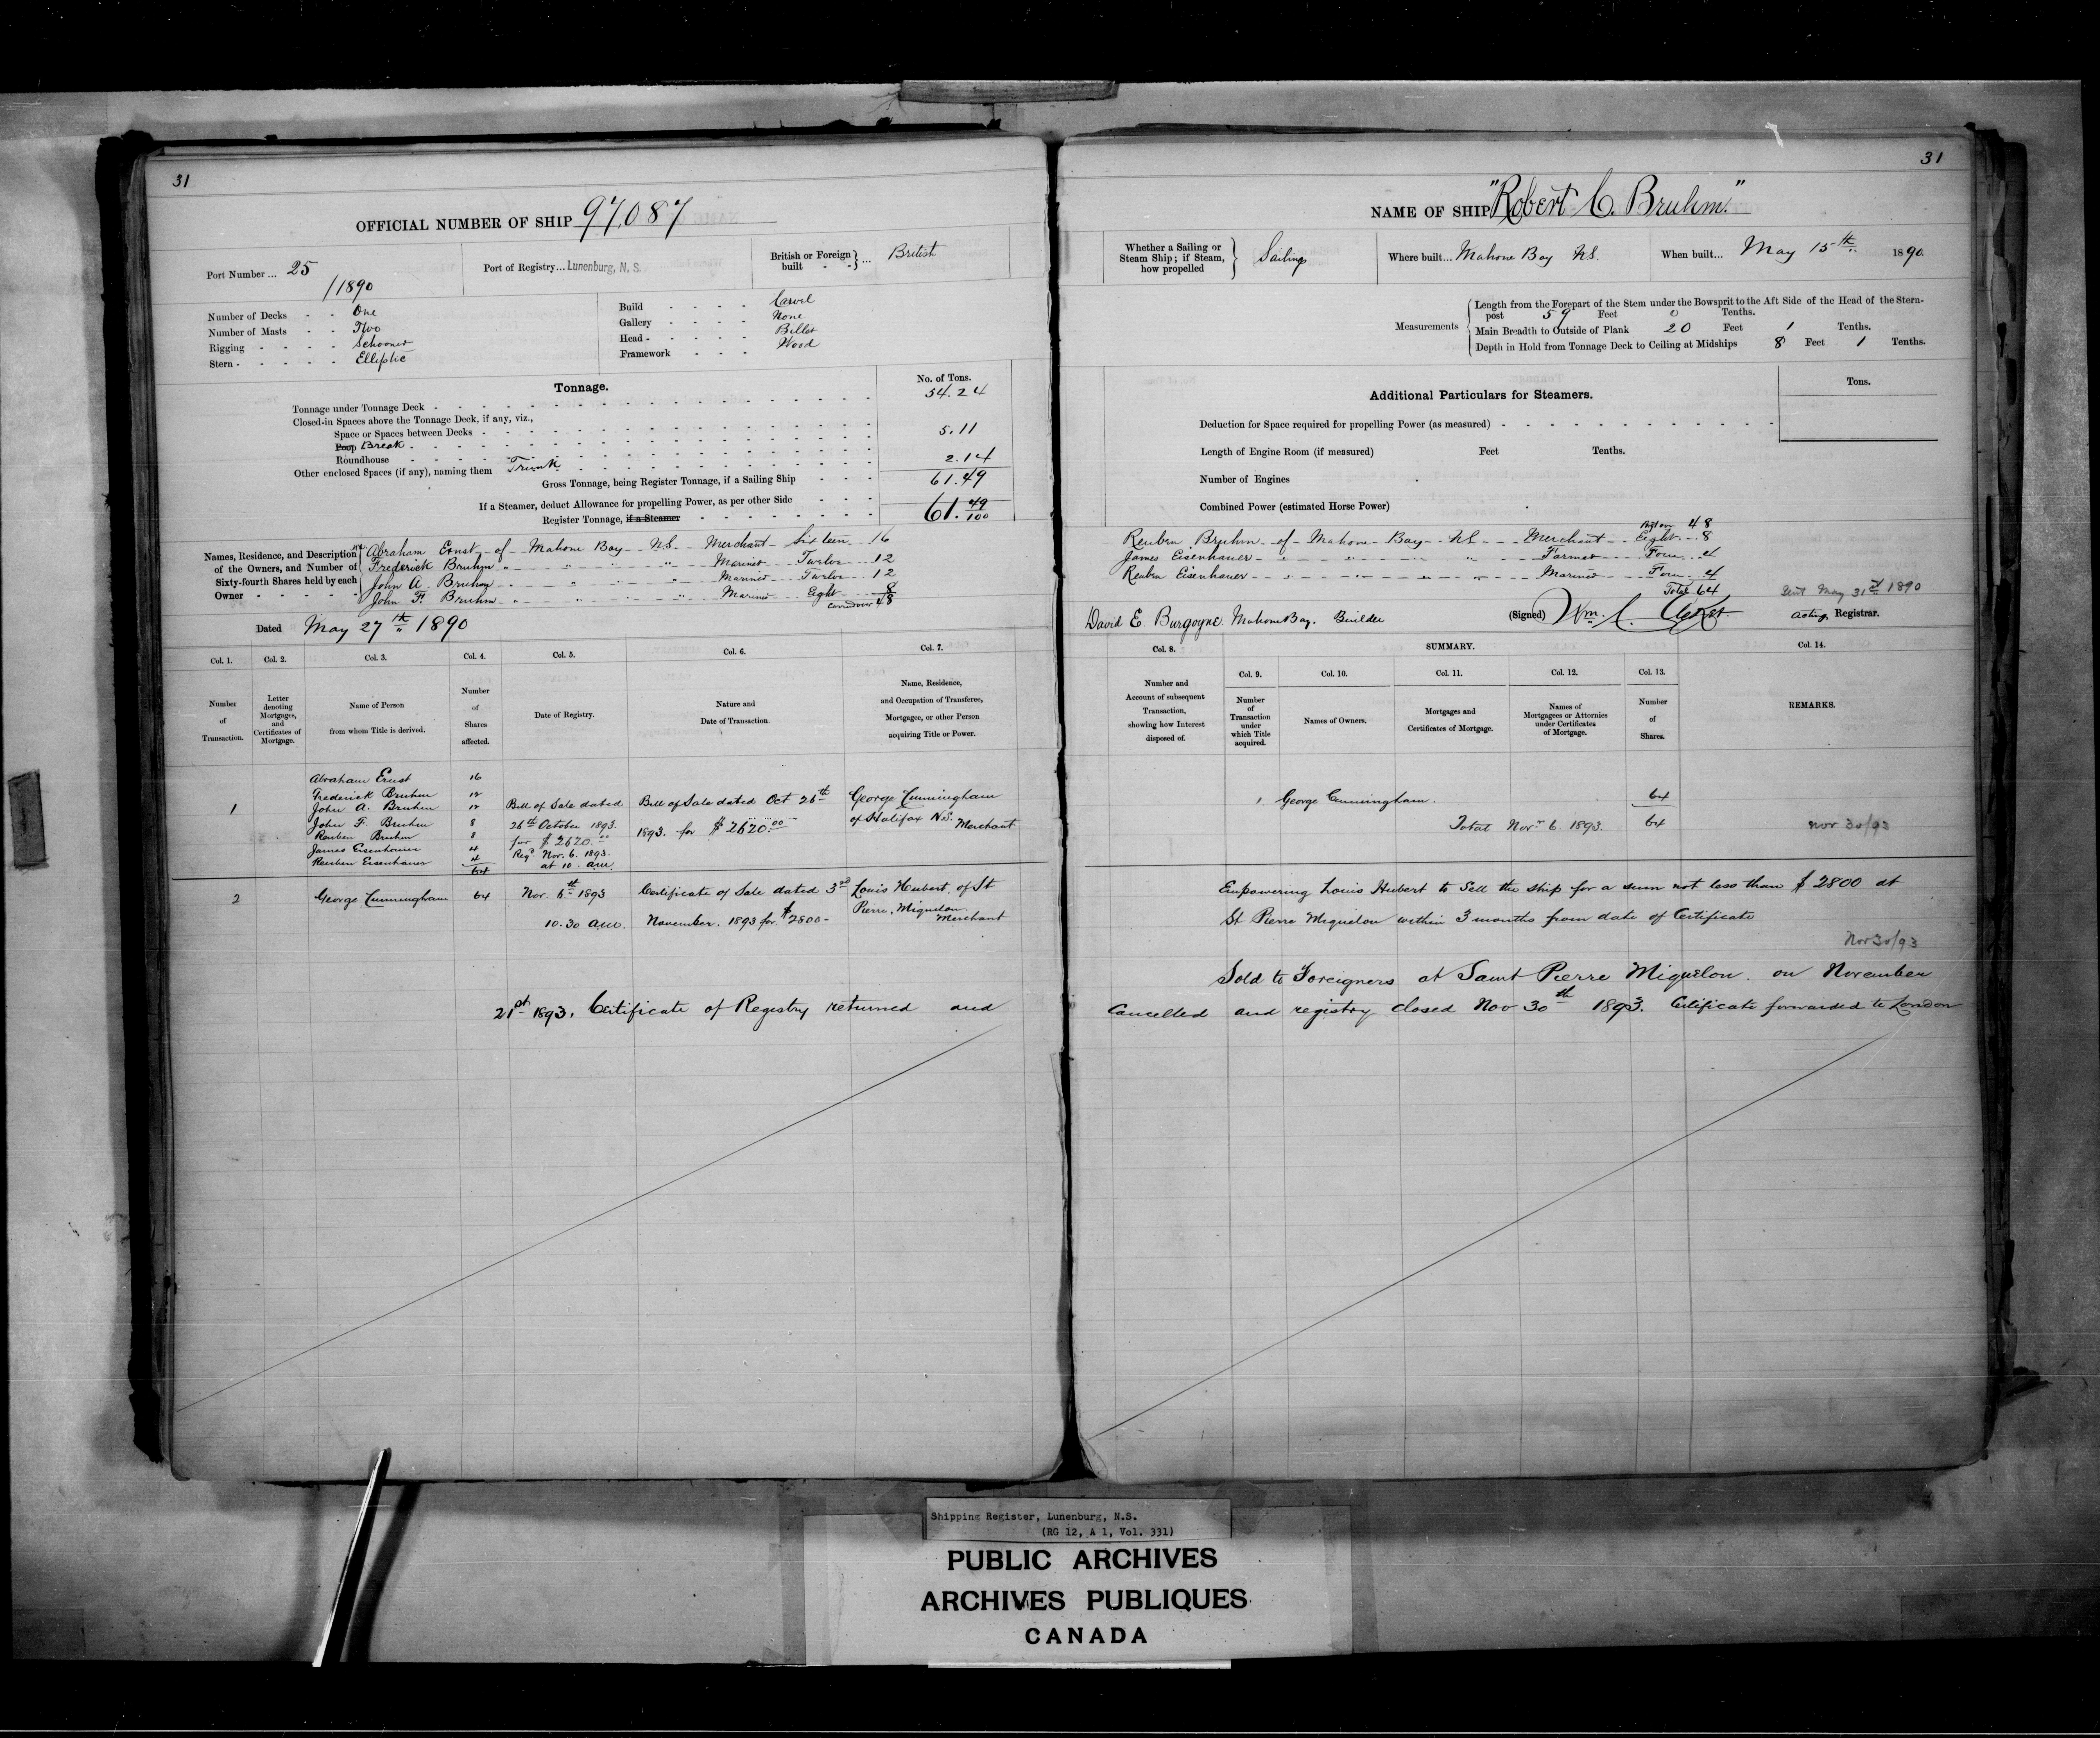 31
OFFICIAL NUMBER OF SHIP 97,087
Port Number ... 25 /1890
Port of Registry... Lunenburg, N. S.
British or Foreign built } ... British
Number of Decks - - One
Number of Masts - - Two
Rigging - - - - Schooner
Stern - - - - - Elliptic
Build - - - - Carvel
Gallery - - - - None
Head - - - - - Billet
Framework - - - Wood
Tonnage.
No. of Tons.
Tonnage under Tonnage Deck - 54.24
Closed-in Spaces above the Tonnage Deck, if any, viz.,
Space or Spaces between Decks -
Poop Break - 5.11
Roundhouse
Other enclosed Spaces (if any), naming them Trunk 2.14
Gross Tonnage, being Register Tonnage, if a Sailing Ship - - - 61.49
If a Steamer, deduct Allowance for propelling Power, as per other Side
Register Tonnage, if a Steamer - 61.49/100
Names, Residence, and Description of the Owners, and Number of Sixty-fourth Shares held by each Owner
Abraham Ernst of Mahone Bay NS Merchant Sixteen 16
Frederick Bruhm " " " Mariner Twelve 12
John A. Bruhm " " " Mariner Twelve 12
John F. Bruhm " " " Mariner Eight 8
Carried over 48
Dated May 27th 1890
Col. 1. Col. 2. Col. 3. Col. 4. Col. 5. Col. 6. Col. 7.
Number of Transaction.
Letter denoting Mortgages, and Certificates of Mortgage.
Name of Person from whom Title is derived.
Number of Shares affected.
Date of Registry.
Nature and Date of Transaction.
Name, Residence, and Occupation of Transferee, Mortgagee, or other Person acquiring Title or Power.
1
Abraham Ernst 16
Frederick Bruhm 12
John A. Bruhm 12
John F. Bruhm 8
Reuben Bruhm 8
James Eisenhauer 4
Reuben Eisenhauer 4
64
Bill of Sale dated
26th October 1893.
for $2620.00
Regd. Nov. 6. 1893.
at 10. a.m.
Bill of Sale dated Oct 26th
1893. for $2620.00
George Cunningham
of Halifax N.S. Merchant
2 George Cunningham 64
Nov. 6th 1893
10.30 a.m.
Certificate of Sale dated 3rd
November. 1893 for $2800-
Louis Hubert, of St
Pierre, Miquelon.
Merchant
21st 1893, Certificate of Registry returned and
31
NAME OF SHIP "Robert C. Bruhm."
Whether a Sailing or Steam Ship; if Steam, how propelled } Sailing
Where built... Mahone Bay NS.
When built... May 15th 1890.
Measurements
Length from the Forepart of the Stem under the Bowsprit to the Aft Side of the Head of the Stern-
post 59 Feet 0 Tenths.
Main Breadth to Outside of Plank 20 Feet 1 Tenths.
Depth in Hold from Tonnage Deck to Ceiling at Midships 8 Feet 1 Tenths.
Additional Particulars for Steamers.
Tons.
Deduction for Space required for propelling Power (as measured) -
Length of Engine Room (if measured) Feet Tenths.
Number of Engines
Combined Power (estimated Horse Power)
48
Reuben Bruhm of Mahone Bay NS Merchant Eight 8
James Eisenhauer " " " Farmer Four 4
Reuben Eisenhauer " " " Mariner Four 4
Total 64
Sent May 31st 1890
David E. Burgoyne. Mahone Bay. Builder
(Signed) Wm. C.
Acting Registrar.
Col. 8. SUMMARY. Col. 14.
Col. 9. Col. 10. Col. 11. Col. 12. Col. 13.
Number and Account of subsequent Transaction, showing how Interest disposed of.
Number of Transaction under which Title acquired.
Names of Owners.
Mortgages and Certificates of Mortgage.
Names of Mortgagees or Attornies under Certificates of Mortgage.
Number of Shares.
REMARKS.
1 George Cunningham. 64
Total Nov. 6. 1893. 64
Nov 30/93
Empowering Louis Hubert to Sell the ship for a sum not less than $2800 at
St Pierre Miquelon within 3 months from date of Certificate
Nov 30/93
Sold to Foreigners at Saint Pierre Miquelon. on November
Cancelled and registry closed Nov 30th 1893. Certificate forwarded to London
Shipping Register, Lunenburg, N.S.
(RG 12, A 1, Vol. 331)
PUBLIC ARCHIVES
ARCHIVES PUBLIQUES
CANADA